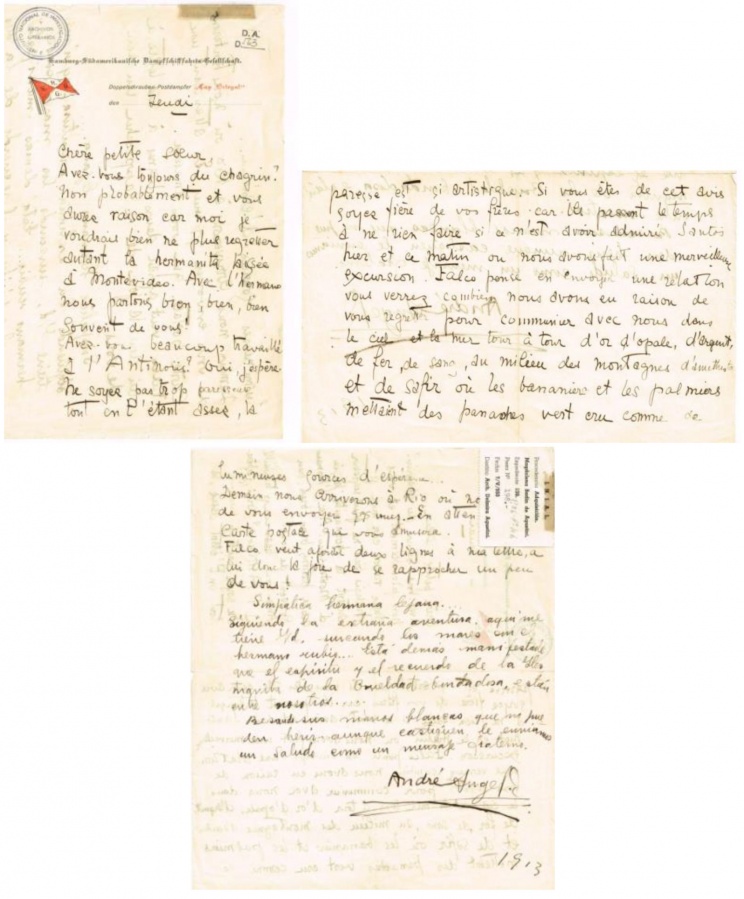 D.A.
D. 123
Hamburg-Südamerikanische Dampfschifffahrts-Gesellschaft.
Doppelschrauben-Postdampfer "Cap
den Jeudi
Chère petite sœur,
Avez-vous toujours du chagrin?
Non probablement et vous
avez raison car moi je
voudrais bien ne plus regretter
autant la hermanita
à Montevideo. Avec l'hermano
nous parlons bien, bien, bien
souvent de vous!
Avez-vous beaucoup travaillé
à l'Antinoüs? Oui, j'espère
ne soyez pas trop paresseuse
tout en l'étant assez, la
paresse est si artistique. Si vous êtes de cet avis
soyez fière de vos frères, car ils passent le temps
à ne rien faire si ce n'est avoir admiré Santos
hier et ce matin où nous avons fait une merveilleuse
excursion. Falco pense en envoyer une relation
vous verrez combien nous avons eu raison de
vous regretter pour communier avec nous dans
le ciel et la mer tour à tour d'or d'opale, d'argent,
de fer, de sang, au milieu des montagnes d'améthyste
et de safir où les bananiers et les palmiers
mettaient des panaches vert cru comme de
lumineuses sources d'espérance...
Demain nous arriverons à Rio où
de vous envoyer
carte postale que vous amusera.
Falco veut ajouter deux lignes à ma lettre, a
lui donc la joie de se rapprocher un peu
de vous!
Simpatica hermana lejana...
Siguiendo la extraña aventura, aqui me
tiene Vd. surcando los mares con el
hermano rubio... Está demás manifestarle
que el espiritu y el recuerdo de la
de la Crueldad bondadosa, están
entre nosotros...
Besando sus manos blancas que no pue
den herir aunque castiguen, le enviamos
un saludo como un mensaje fraterno.
André Ange
1913